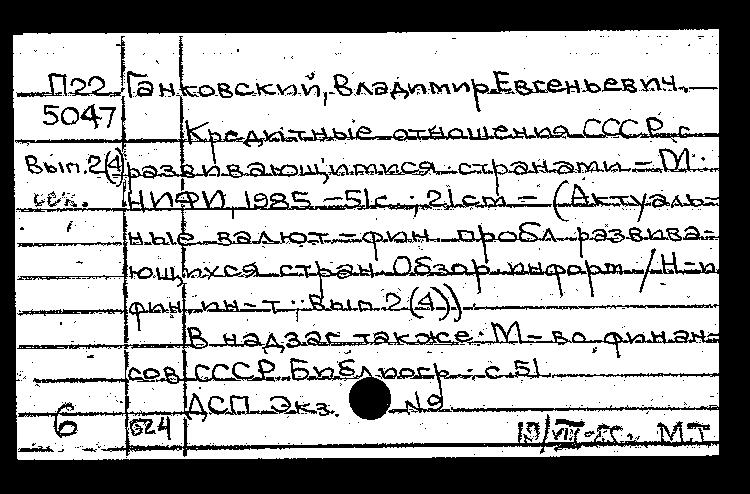 П22 Ганковский, Владимир Евгеньевич.
5047 Кредитные отношения СССР с
Вып. 2(4) развивающимися странами = М.:
сек. НИФИ, 1985 - 51с.; 21 cm - (Актуаль-
ные валют = фин пробл развива-
ющихся стран Обзор информ / Н-и
фин ин-т; Вып 2(4)).
В надзаг также: М-во финан-
сов СССР Библиогр: с. 51
ДСП Экз. №9
6 624 М.Т